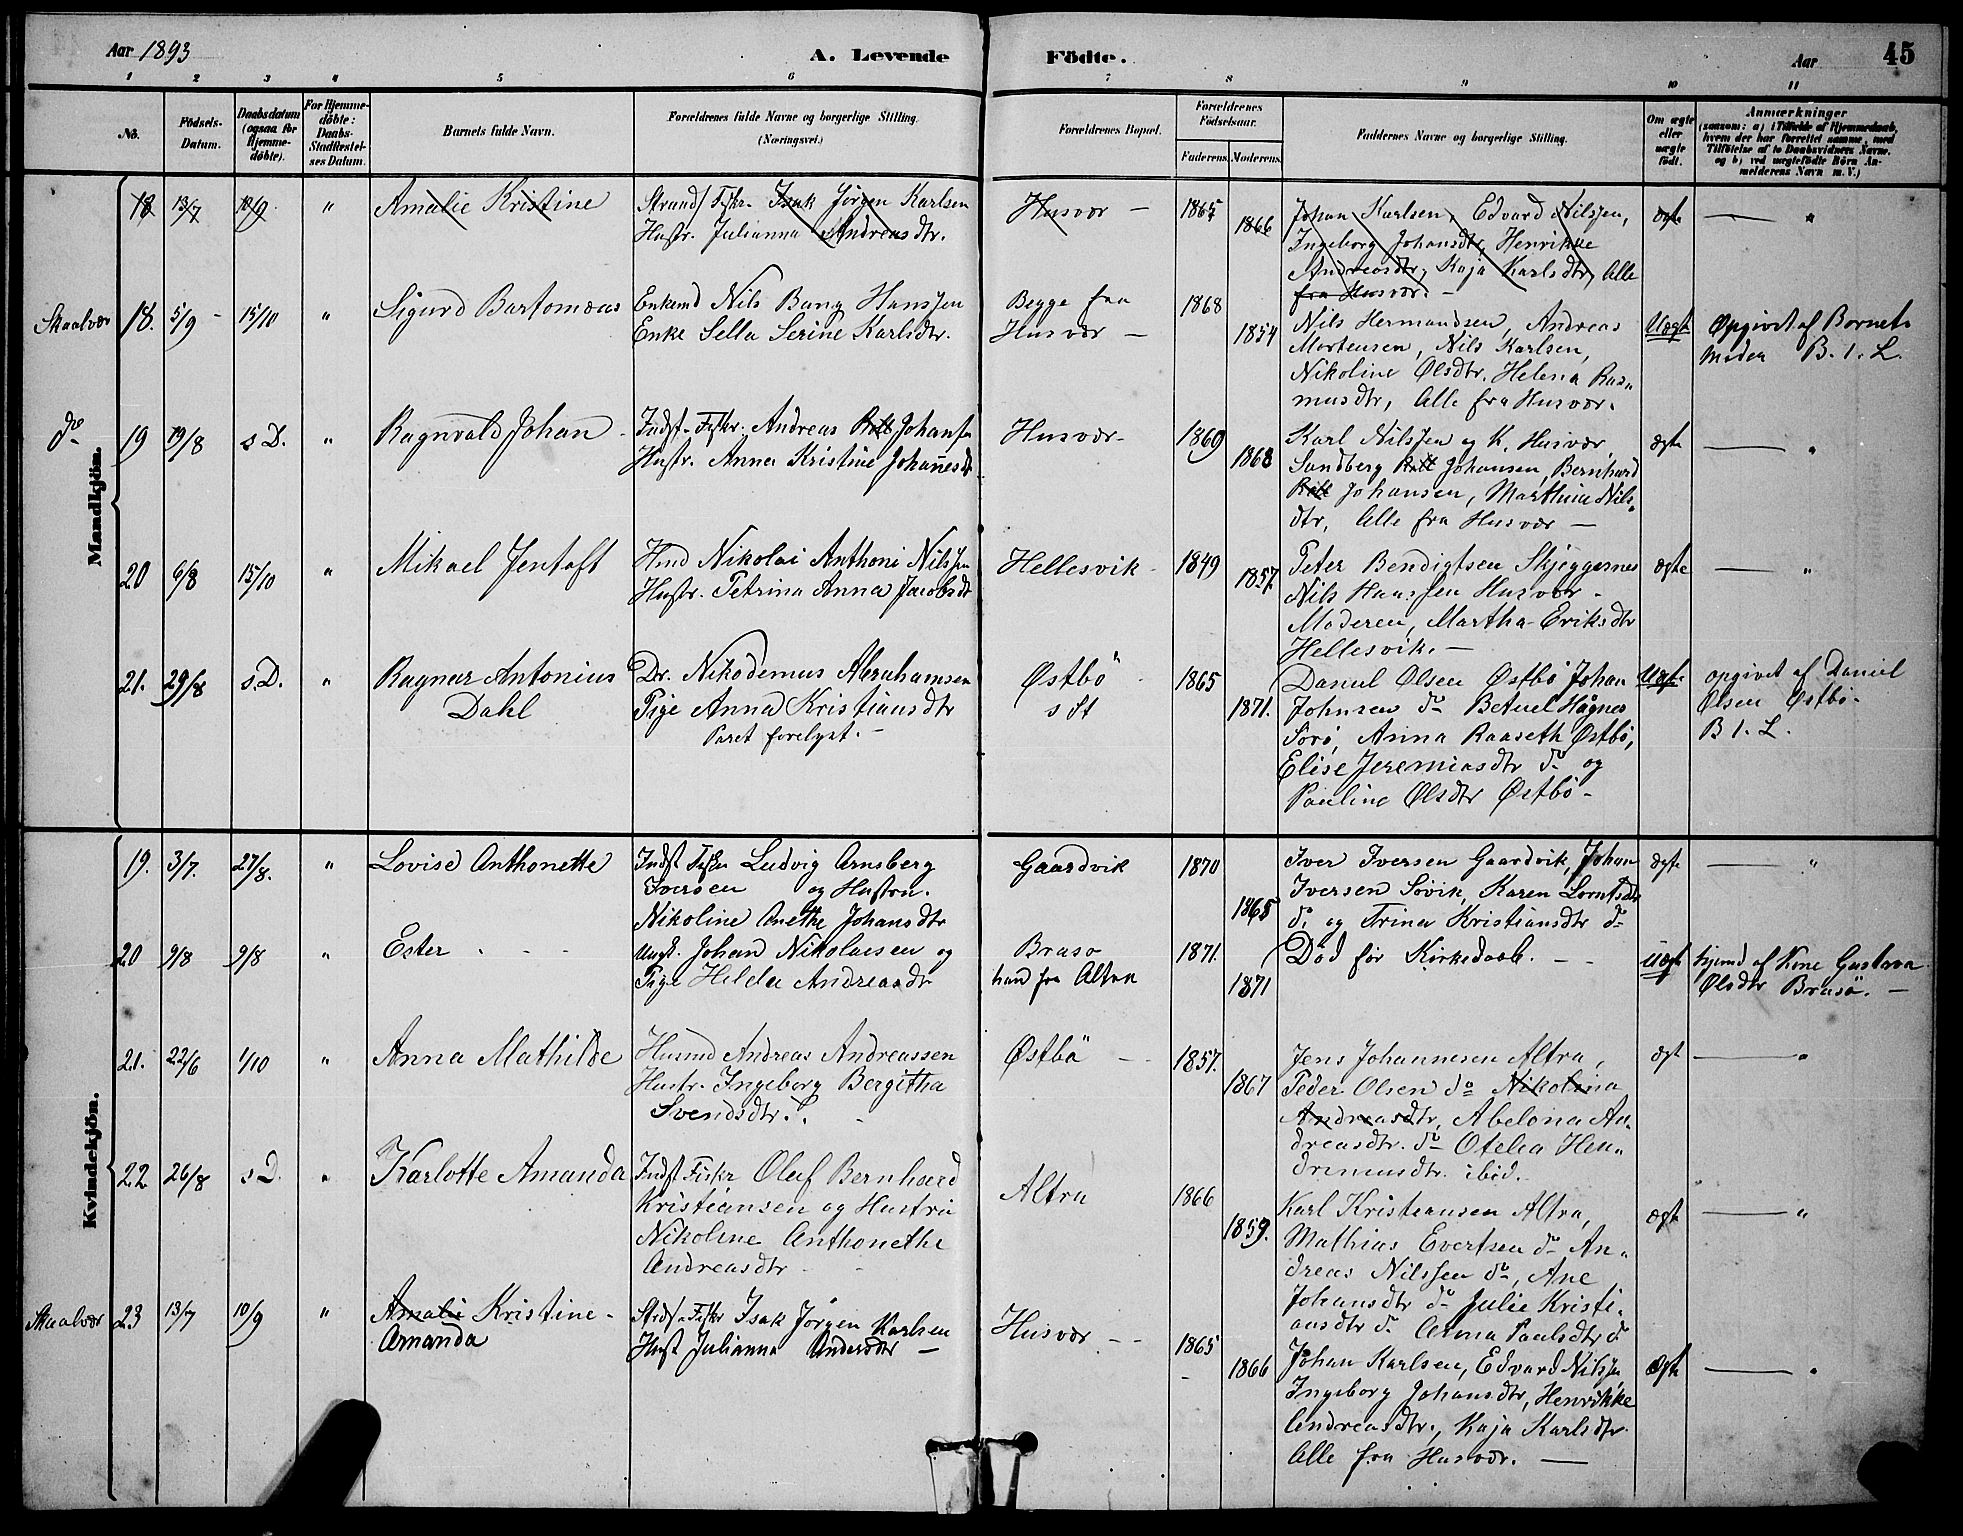 Aar 1893
A. Levende
Födte.
Aar
45
1 2 3 4 5 6 7 8 9 10 11
No. Födsels-Datum. Daabsdatum (ogsaa for Hjemmedöbte). For Hjemmedöbte: Daabs-Stadfæstelses Datum. Barnets fulde Navn. Forældrenes fulde Navne og borgerlige Stilling. (Næringsvei.) Forældrenes Bopæl. Forældrenes Födselsaar. Faderens. Moderens. Faddernes Navne og borgerlige Stilling. Om ægte eller uægte födt. Anmærkninger (saasom: a) i Tilfælde af Hjemmedaab, hvem der har forrettet samme, med Tilföielse af to Daabsvidners Navne, og b) ved uægtefödte Börn Anmelderens Navn m.V.)
Mandkjön.
18 13/7 10/9 " Amalie Kristine
Strands. Fiskr. Isak Jörgen Karlsen
Hustr. Julianna Andreasdtr.
Husvær —
1865 1866
Johan Karlsen, Edvard Nilssen,
Ingeborg Johansdtr, Henrikke
Andreasdtr, Kaja Karlsdtr, Alle
fra Husvær. —
ægte — "
Skaalvær 18. 5/9 - 15/10 " Sigurd Bartomæus
Enkemd Nils Bang Hanssen
Enke Sella Serine Karlsdtr.
Begge fra
Husvær —
1868 1854
Nils Hermandsen, Andreas
Mortensen, Nils Karlsen,
Nikoline Olsdtr. Helena Ras"
musdtr, Alle fra Husvær.
Uægt
Opgivet af Barnets
Moder B. 1. L.
do 19 19/8 s D. " Ragnvald Johan
Indst. Fiskr. Andreas Johansen
Hustr. Anna Kristine Johanesdt
Husvær-
1869 1868
Karl Nilssen og K. Husvær,
Sandberg Johansen, Bernhard
Johansen, Marthine Nils"
dtr, Alle fra Husvær —
ægte — "
20 6/8 15/10 " Mikael Jentoft
Hmd Nikolai Anthoni Nilssen
Hustr. Petrina Anna Jacobsdt
Hellesvik -
1849 1857.
Peter Bendigtsen Skjeggernes
Nils Hanssen Husvær -
Moderen, Martha Eriksdtr
Hellesvik. —
ægte — "
21. 29/8 s.D. " Ragnar Antonius
Dahl
Dr. Nikodemus Abrahamsen
Pige Anna Kristiansdtr
Paret forelyst. —
Østbö -
s St
1865 1871.
Daniel Olsen Østbö Johan
Johnsen do Betuel Hågnes
Sörö, Anna Raaseth Østbö,
Elise Jeremiasdtr do og
Pauline Olsdtr Østbö -
Uægte
opgivet af Daniel
Olsen Østbö-
B 1. L.
Kvindekjön.
19. 3/7. 27/8. " Lovise Anthonette
Indst Fisker Ludvig Arnsberg
Iversen og Hustru.
Nikoline Anethe Johansdtr
Gaardvik
1870 1865
Iver Iversen Gaardvik, Johan
Iversen Sövik, Karen Lorntsdtr
do og Trina Kristiansdtr do
ægte — "
20 9/8 9/8 " Ester - - -
Ungk. Johan Nikolaisen og
Pige Helda Andreasdtr
Brasö
han fra Altra
1871. 1871
Död før Kirkedaab. — -
Uægt
hjemd af Kone Gustava
Olsdtr Brasö. —
21. 22/6 1/10 " Anna Mathilde
Husmd Andreas Andreassen
Hustr. Ingeborg Bergitha
Svendsdtr.
Østbö —
1857. 1867
Jens Johannesen Altra,
Peder Olsen do Nikolina
Andreasdtr, Abelona An"
dreasdtr. do Otelia Hen"
drimusdtr. ibid.
ægt — "
22 26/8 s D. " Karlotte Amanda
Indst Fiskr Oluf Bernhard
Kristiansen og Hustru
Nikoline Anthonethe
Andreasdtr -
Altra
1866 1859.
Karl Kristiansen Altra,
Mathias Evertsen do An"
dreas Nilssen do, Ane
Johansdtr do Julie Kristi"
ansdtr do Anna Paulsdtr do
ægt — "
Skaalvær 23 13/7 10/9 " Amalie Kristine -
Amanda
Strds. Fiskr Isak Jörgen Karlsen
Hust Julianna Andersdtr —
Husvær - -
1865 1866
Johan Karlsen, Edvard Nilssen
Ingeborg Johansdtr, Henrikke
Andreasdtr., Kaja Karlsdtr.
Alle fra Husvær. —
Ægte — "